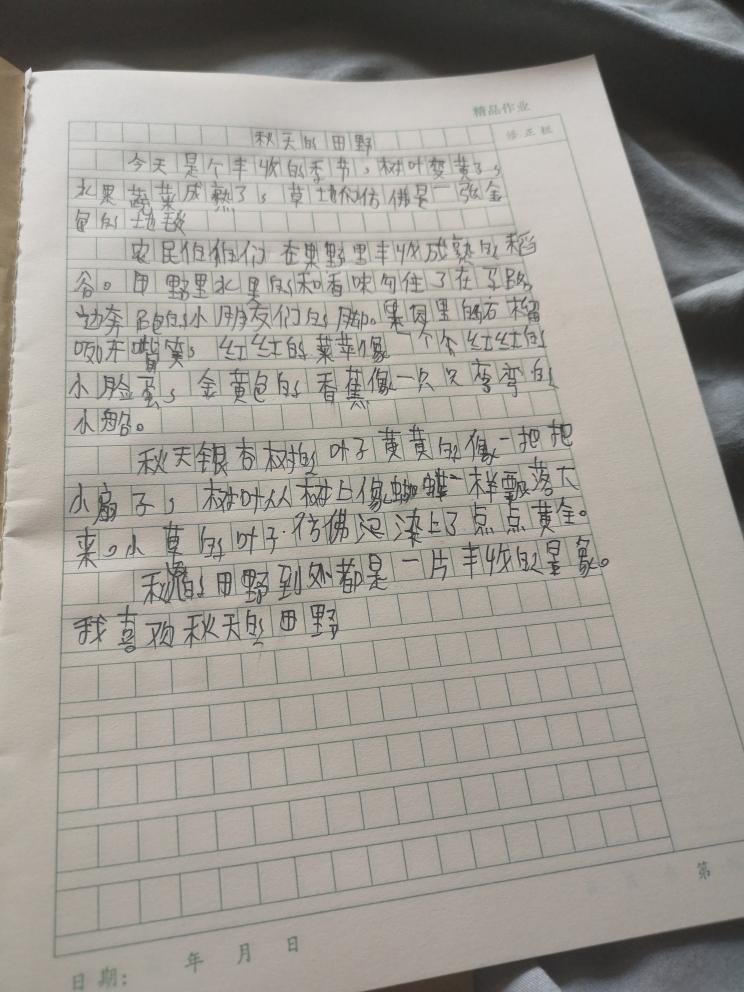 精品作业
修正栏
秋天的田野
今天是个丰收的季节，树叶变黄了，
水果蔬菜成熟了，草地仿佛是一张金
色的地毯
农民伯伯们在果野里丰收成熟的稻
谷。田野里水果的和香味勾住了在马路
边奔跑的小朋友们的脚。果园里的石榴
咧开嘴笑，红红的苹像一个个红红的
小脸蛋，金黄色的香蕉像一只只弯弯的
小船。
秋天银杏树的叶子黄黄的像一把把
小扇子，树叶从树上像蝴蝶一样飘落下
来。小草的叶子仿佛染上了点点黄金。
秋的田野到处都是一片丰收的景象。
我喜欢秋天的田野
第
日期： 年 月 日